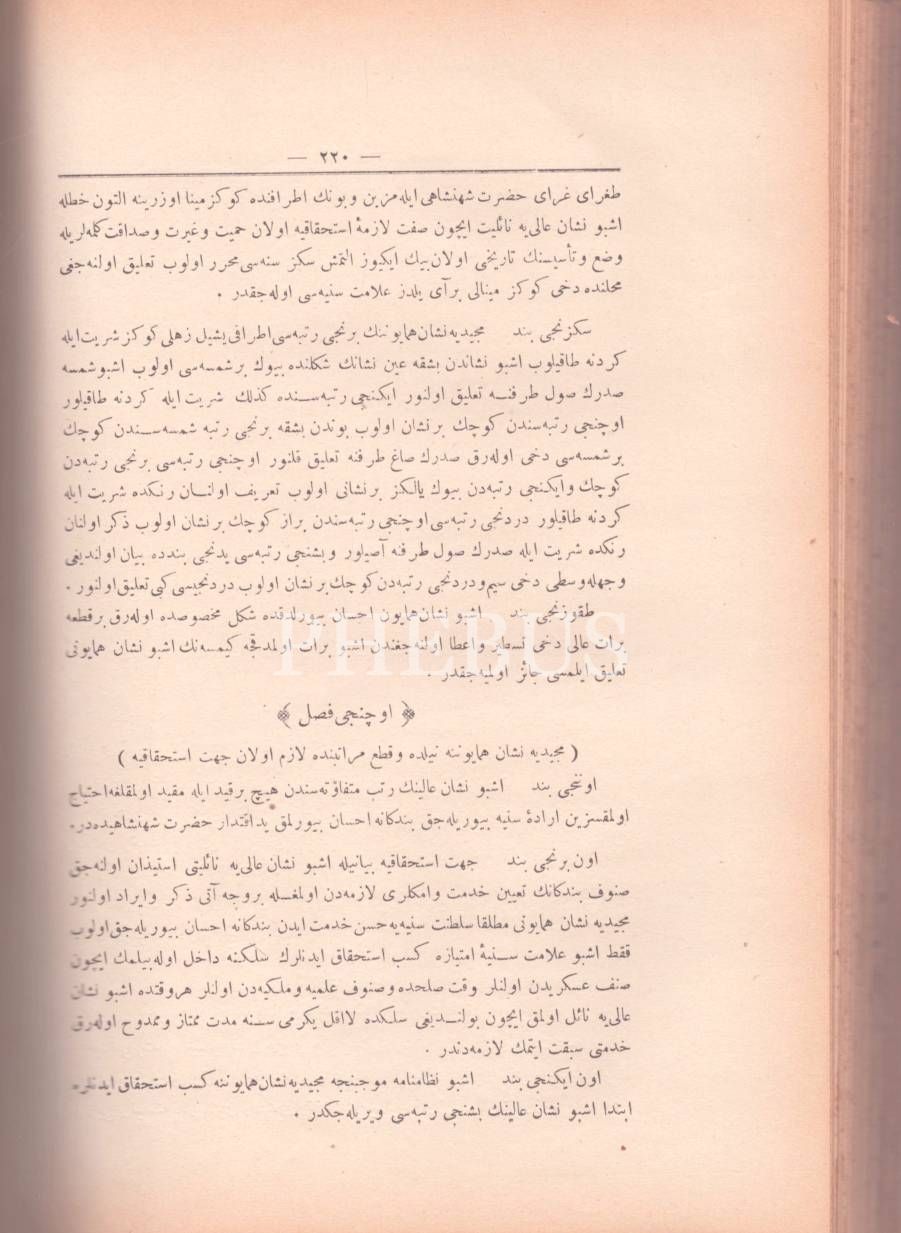 — ٢٢٠ —
طغرای غرای حضرت شهنشاهی ایله مزین وبونك اطرافنده كوكزمینا اوزرینه التون خطله
اشبو نشان عالی‌یه نائلیت ایچون صفت لازمهٔ استحقاقیه اولان حمیت وغیرت وصداقت كلمه‌لریله
وضع وتأسیسنك تاریخی اولان بیك ایكیوز التمش سكز سنه‌سی محرر اولوب تعلیق اولنه‌جغی
محلنده دخی كوكز مینالی برآی یلدز علامت سنیه‌سی اوله‌جقدر .
سكزنجی بند مجیدیه نشان همایوننك برنجی رتبه‌سی اطرافی یشیل زهلی كوكز شریت ایله
كردنه طاقیلوب اشبو نشاندن بشقه عین نشانك شكلنده بیوك برشمسه‌سی اولوب اشبوشمسه
صدرك صول طرفنه تعلیق اولنور ایكنجی رتبه‌سنده كذلك شریت ایله كردنه طاقیلور
اوچنجی رتبه‌سندن كوچك برنشان اولوب بوندن بشقه برنجی رتبه شمسه‌سندن كوچك
برشمسه‌سی دخی اوله‌رق صدرك صاغ طرفنه تعلیق قلنور اوچنجی رتبه‌سی برنجی رتبه‌دن
كوچك وایكنجی رتبه‌دن بیوك یالكز برنشانی اولوب تعریف اولنان رنكده شریت ایله
كردنه طاقیلور دردنجی رتبه‌سی اوچنجی رتبه‌سندن براز كوچك برنشان اولوب ذكر اولنان
رنكده شریت ایله صدرك صول طرفنه آصیلور وبشنجی رتبه‌سی یدنجی بندده بیان اولندیغی
وجهله وسطی دخی سیم ودردنجی رتبه‌دن كوچك برنشان اولوب دردنجیسی كبی تعلیق اولنور .
طقوزنجی بند اشبو نشان همایون احسان بیورلدقده شكل مخصوصده اوله‌رق برقطعه
برات عالی دخی تسطیر واعطا اولنه‌جغندن اشبو برات اولمدقجه كیمسه‌نك اشبو نشان همایونی
تعلیق ایلمسی جائز اولمیه‌جقدر .
PHEBUS
﴿ اوچنجی فصل ﴾
( مجیدیه نشان همایوننه نیلده وقطع مراتبنده لازم اولان جهت استحقاقیه )
اوننجی بند اشبو نشان عالینك رتب متفاوته‌سندن هیچ برقید ایله مقید اولمقلغه احتیاج
اولمقسزین ارادهٔ سنیه بیوریله‌جق بندكانه احسان بیورلمق ید اقتدار حضرت شهنشاهیده‌در.
اون برنجی بند جهت استحقاقیه بیانیله اشبو نشان عالی‌یه نائلیتی استیذان اولنه‌جق
صنوف بندكانك تعیین خدمت وامكلری لازمه‌دن اولمغله بروجه آتی ذكر وایراد اولنور
مجیدیه نشان همایونی مطلقا سلطنت سنیه‌یه حسن خدمت ایدن بندكانه احسان بیوریله‌جق اولوب
فقط اشبو علامت سنیهٔ امتیازه كسب استحقاق ایدنلرك سلكنه داخل اوله‌بیلمك ایچون
صنف عسكریدن اولنلر وقت صلحده وصنوف علمیه وملكیه‌دن اولنلر هروقتده اشبو نشان
عالی‌یه نائل اولمق ایچون بولندیغی سلكده لااقل یكرمی سنه مدت ممتاز وممدوح اوله‌رق
خدمتی سبقت ایتمك لازمه‌دندر .
اون ایكنجی بند اشبو نظامنامه موجبنجه مجیدیه نشان همایوننه كسب استحقاق ایدنلره
ابتدا اشبو نشان عالینك بشنجی رتبه‌سی ویریله‌جكدر .